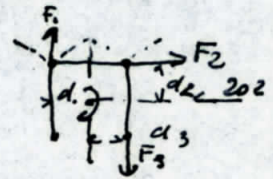 F₁
F₂
d₁ d₂ 202
d₃
F₃